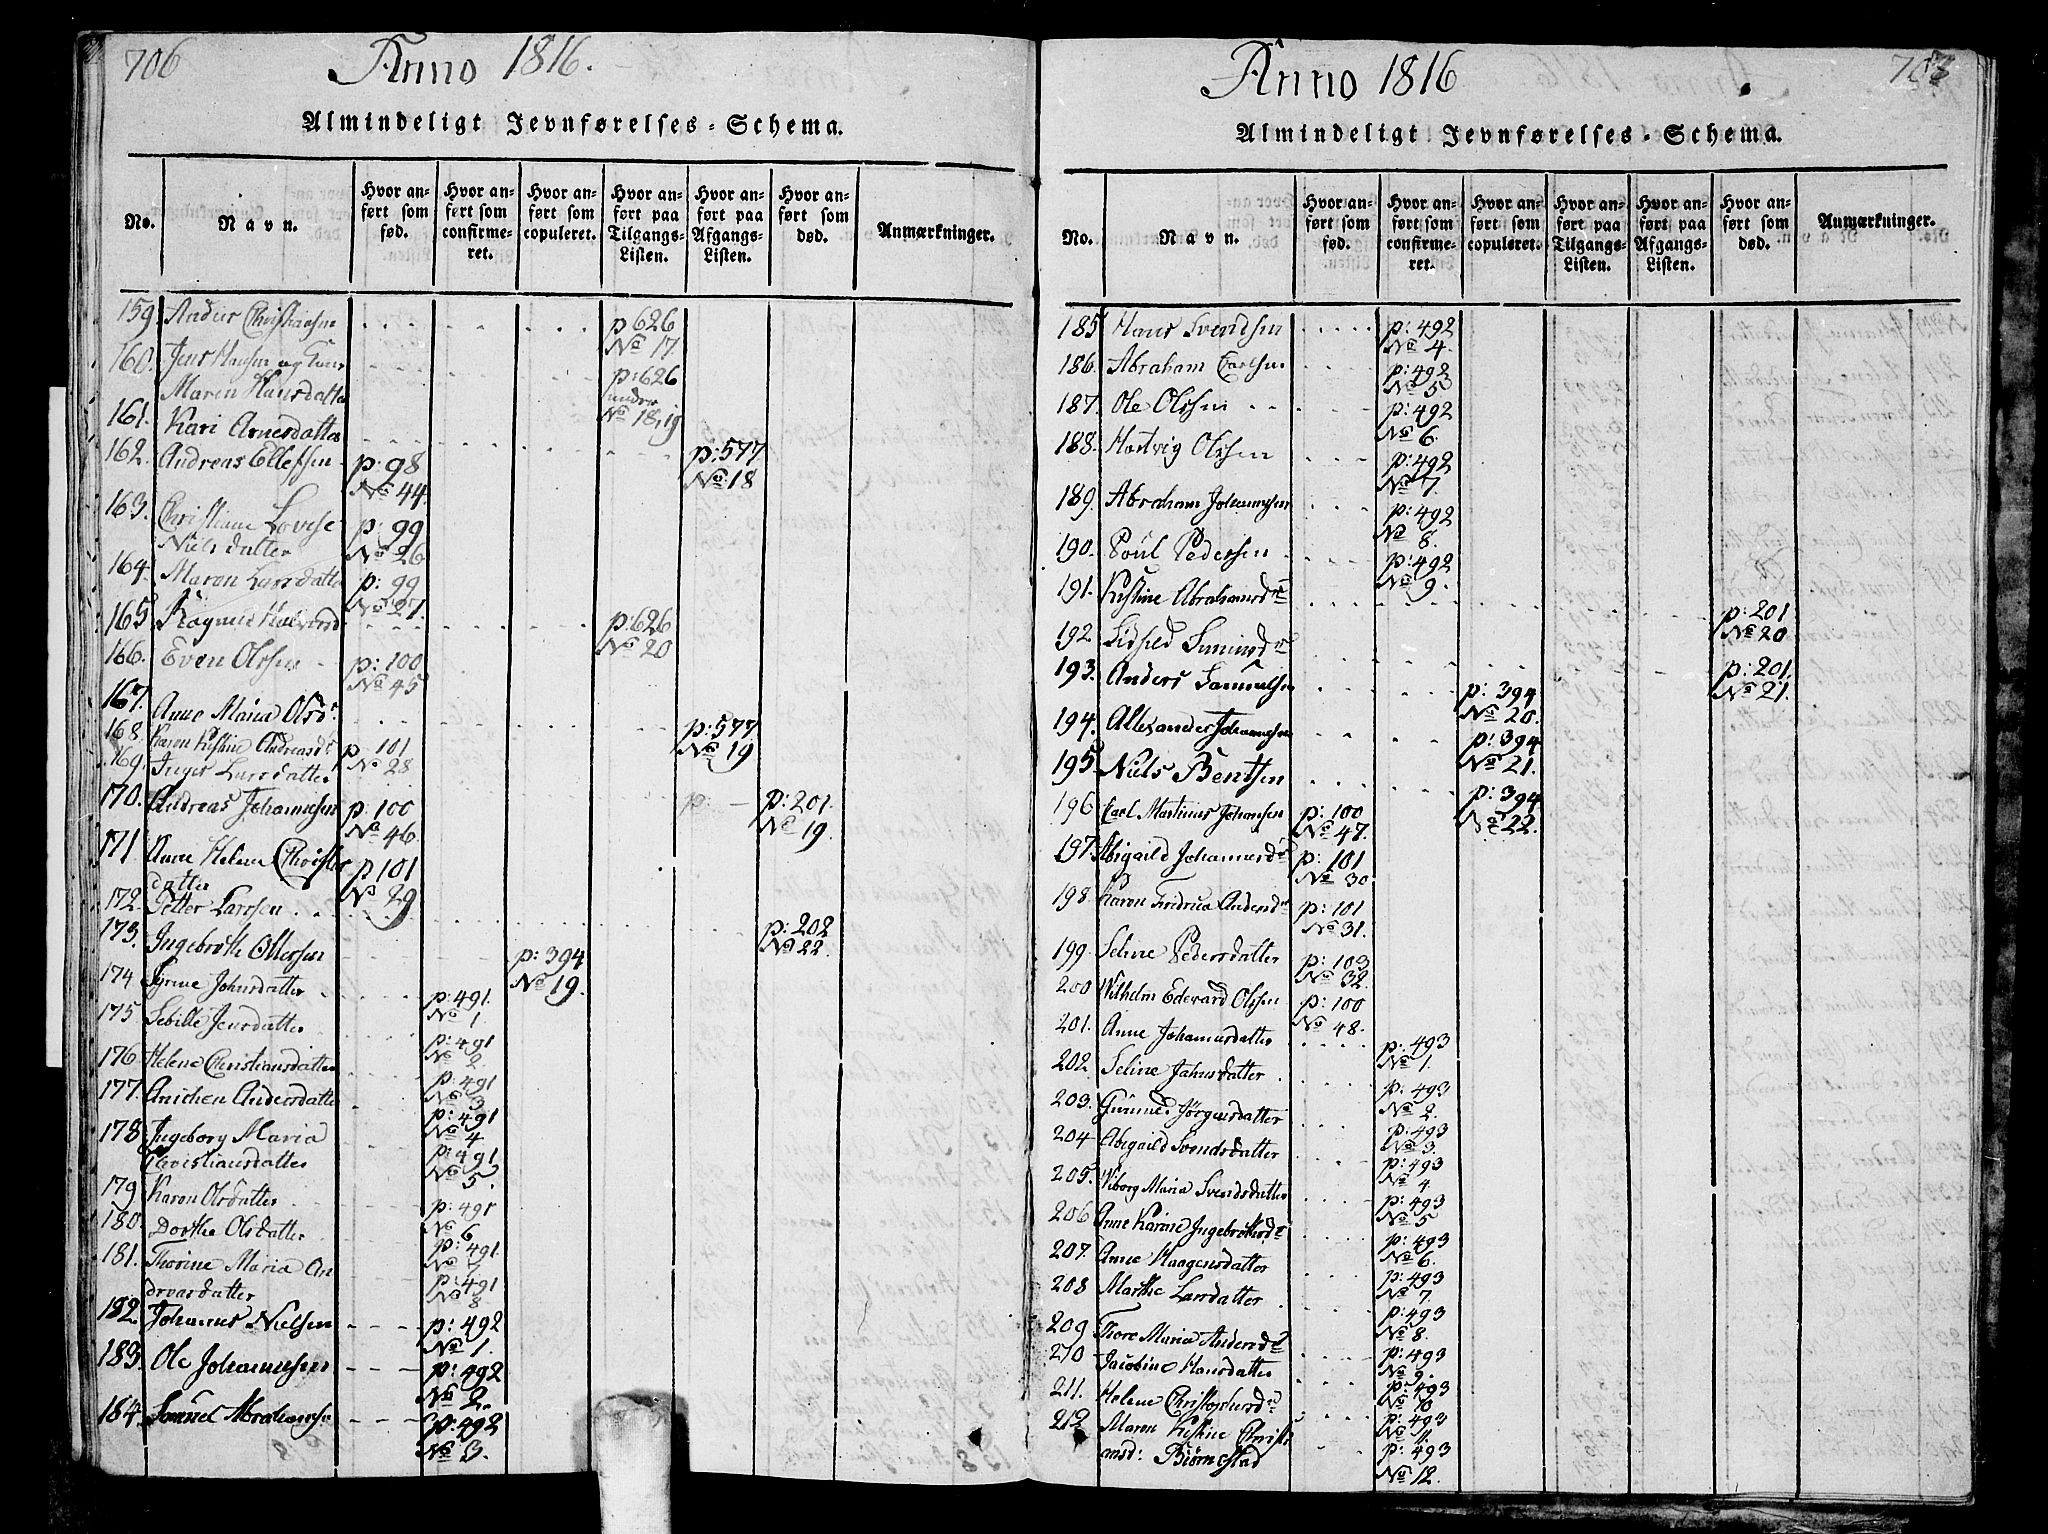 706
Anno 1816.
Almindeligt Jevnførelses-Schema.
No.
Navn.
Hvor anført som fød.
Hvor anført som confirmeret.
Hvor anført som copuleret.
Hvor anført paa Tilgangs-Listen.
Hvor anført paa Afgangs-Listen.
Hvor anført som død.
Anmærkninger.
159. Anders Christiansen p 626 No 17.
160. Jens Hansen og
Maren Hansdatter p: 626 No 18, 19
161. Kari Arnesdatter p: 577 No 18
162. Andreas Ellefsen p: 98 No 44.
163. Christiane Lovise
Nielsdatter p: 99 No 26
164. Maren Larsdatter p: 99 No 27.
165 p: 626 No 20
166. Even Olsen p: 100 No 45
167. Anne Maria Olsdr. p: 577 No 19
168. Karen Kistine Andreasdr p 101 No 28
169. Inger Larsdatter p: 201. No 19.
170. Andreas Johannesen p: 100 No 46
171. Anne Helene
datter p 101 No 29
172. Petter Larsen p: 202 No 22.
173. Ingebreth Ollersen p: 394 No 19.
174 Johnsdatter p: 491. No 1.
175 Sebille Jensdatter p: 491 No 2.
176 Helene Christiansdatter p: 491 No 3
177. Anichen Andersdatter p: 491 No 4
178. Ingeborg Maria
Christiansdatter p: 491 No 5.
179 Karen Olsdatter p: 491 No 6
180. Dorthe Olsdatter p: 491. No 7
181. Thorine Maria An
drardatter p: 491 No 8
182. Johannes Nielsen p: 492 No 1.
183. Ole Johannesen p: 492 No 2.
184. Samuel Abrahamsen p: 492 No 3.
Anno 1816
Almindeligt Jevnførelses-Schema.
No.
Navn.
Hvor anført som fød.
Hvor anført som confirmeret.
Hvor anført som copuleret.
Hvor anført paa Tilgangs-Listen.
Hvor anført paa Afgangs-Listen.
Hvor anført som død.
Anmærkninger.
185 Hans Svendsen p: 492 No 4.
186. Abraham Carlsen p: 492 No 5
187. Ole Olssen p: 492 No 6.
188. Hartvig Olssen p: 492 No 7.
189. Abraham Johannesen p: 492 No 8.
190. Poul Pedersen p: 492 No 9.
191. Kistine Abrahamsdr p: 201 No 20
192. p: 201. No 21.
193. Anders Samuelsen p: 394 No 20.
194. Allexander Johannesen p: 394 No 21.
195. Niels Bentsen p: 394 No 22.
196 Carl Martinus Johansen p: 100 No 47.
197. Abigaild Johannesdr p: 101 No 30
198. Karen Fredrica Andersdr p: 101 No 31.
199. Seline Pedersdatter p: 103 No 32.
200 Wilhelm Edevard Olssen p: 100 No 48.
201. Anne Johannesdatter p: 493 No 1.
202. Seline Jahnsdatter p. 493 No 2.
203. Gunned Jörgensdatter p: 493 No 3.
204 Abigaild Svendsdatter p: 493 No 4
205. Viborg Maria Svendsdatter p: 493 No 5
206 Anne Karine Ingebrethsdr p: 493 No 6.
207. Anne Haagensdatter p: 493 No 7.
208 Marthe Larsdatter p: 493 No 8.
209 Thore Maria Andersdr p: 493 No 9.
210 Jacobine Hansdatter p: 493 No 10
211. Helene Christophersdr p: 493 No 11.
212 Maren Kistine Christi
ansd: Biörnestad p: 493 No 12.